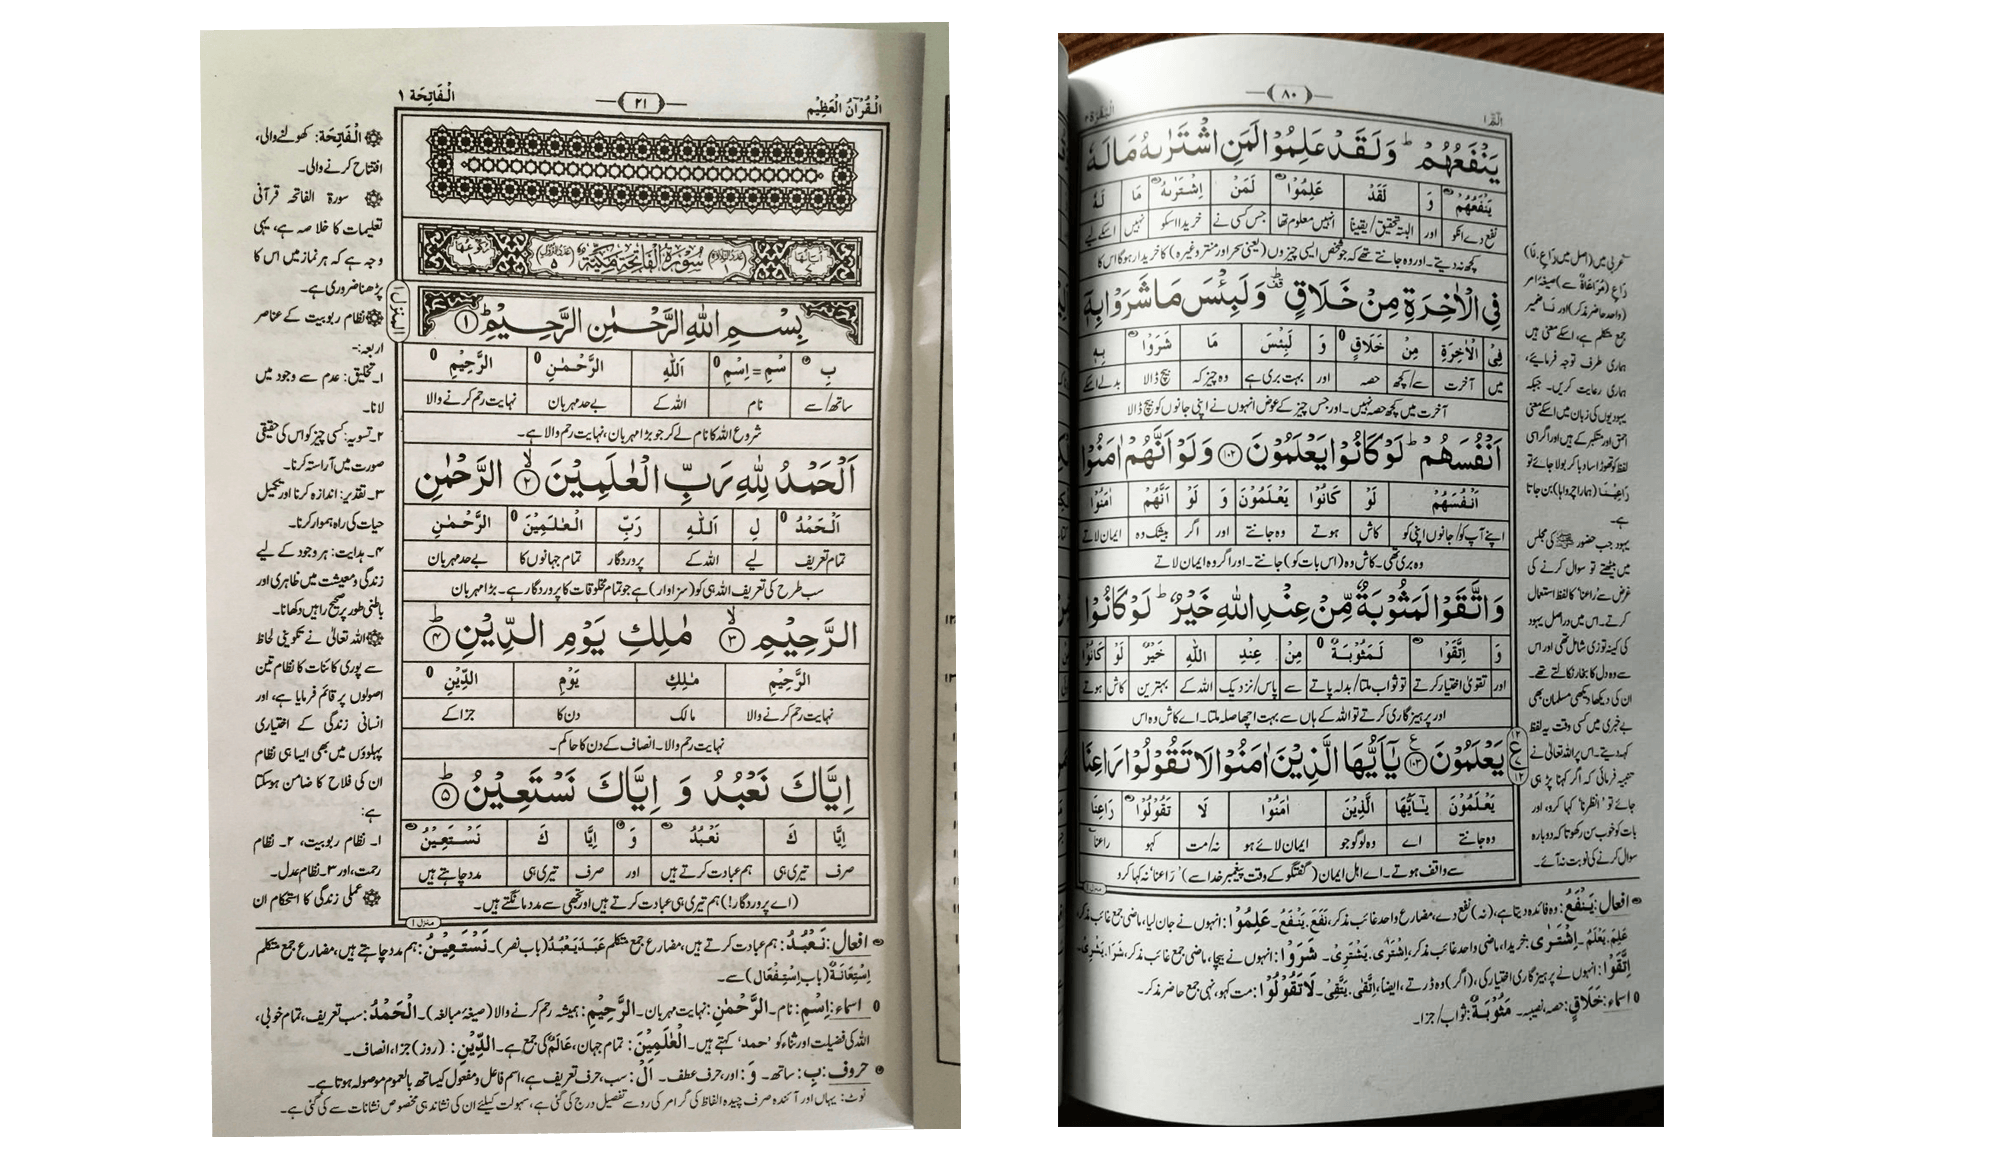 الْفَاتِحَة ١
٢١
الْقُرْآنُ الْعَظِيْم
الْفَاتِحَة: کھولنے والی،
افتتاح کرنے والی۔
سورۃ الفاتحہ قرآنی
تعلیمات کا خلاصہ ہے، یہی
وجہ ہے کہ ہر نماز میں اس کا
پڑھنا ضروری ہے۔
نظام ربوبیت کے عناصر
اربعہ:۔
۱۔ تخلیق: عدم سے وجود میں
لانا۔
۲۔ تسویہ: کسی چیز کو اس کی حقیقی
صورت میں آراستہ کرنا۔
۳۔ تقدیر: اندازہ کرنا اور تکمیل
حیات کی راہ ہموار کرنا۔
۴۔ ہدایت: ہر وجود کے لیے
زندگی و معیشت میں ظاہری اور
باطنی طور پر صحیح راہیں دکھانا۔
اللہ تعالیٰ نے تکوینی لحاظ
سے پوری کائنات کا نظام تین
اصولوں پر قائم فرمایا ہے، اور
انسانی زندگی کے اختیاری
پہلوؤں میں بھی ایسا ہی نظام
ان کی فلاح کا ضامن ہوسکتا
ہے:
۱۔ نظام ربوبیت، ۲۔ نظام
رحمت، اور ۳۔ نظام عدل۔
عملی زندگی کا استحکام ان
سُوْرَةُ الْفَاتِحَةِ مَكِّيَّةٌ
المنزل ١
بِسْمِ اللّٰهِ الرَّحْمٰنِ الرَّحِيْمِ ١
بِ سْمِ=اِسْمِ اَللّٰهِ الرَّحْمٰنِ الرَّحِيْمِ
ساتھ/سے نام اللہ کے بے حد مہربان نہایت رحم کرنے والا
شروع اللہ کا نام لے کر جو بڑا مہربان، نہایت رحم والا ہے۔
اَلْحَمْدُ لِلّٰهِ رَبِّ الْعٰلَمِيْنَ ٢ الرَّحْمٰنِ
اَلْحَمْدُ لِ اَللّٰهِ رَبِّ الْعٰلَمِيْنَ الرَّحْمٰنِ
تمام تعریف لیے اللہ کے پروردگار تمام جہانوں کا بے حد مہربان
سب طرح کی تعریف اللہ ہی کو (سزاوار) ہے جو تمام مخلوقات کا پروردگار ہے۔ بڑا مہربان
الرَّحِيْمِ ٣ مٰلِكِ يَوْمِ الدِّيْنِ ٤
الرَّحِيْمِ مٰلِكِ يَوْمِ الدِّيْنِ
نہایت رحم کرنے والا مالک دن کا جزا کے
نہایت رحم والا۔ انصاف کے دن کا حاکم۔
اِيَّاكَ نَعْبُدُ وَ اِيَّاكَ نَسْتَعِيْنُ ٥
اِيَّا كَ نَعْبُدُ وَ اِيَّا كَ نَسْتَعِيْنُ
صرف تیری ہی ہم عبادت کرتے ہیں اور صرف تیری ہی مدد چاہتے ہیں
(اے پروردگار!) ہم تیری ہی عبادت کرتے ہیں اور تجھی سے مدد مانگتے ہیں۔
منزل ١
افعال: نَعْبُدُ: ہم عبادت کرتے ہیں، مضارع جمع متکلم عَبَدَ يَعْبُدُ (باب نصر)۔ نَسْتَعِيْنُ: ہم مدد چاہتے ہیں، مضارع جمع متکلم
اِسْتِعَانَةٌ (باب اِسْتِفْعَال) سے۔
اسماء: اِسْمِ: نام۔ الرَّحْمٰنِ: نہایت مہربان۔ الرَّحِيْمِ: ہمیشہ رحم کرنے والا (صیغۂ مبالغہ)۔ الْحَمْدُ: سب تعریف، تمام خوبی،
اللہ کی فضیلت اور ثناء کو 'حمد' کہتے ہیں۔ الْعٰلَمِيْنَ: تمام جہان، عَالَمٌ کی جمع ہے۔ الدِّيْنِ: (روز) جزا، انصاف۔
حروف: بِ: ساتھ۔ وَ: اور، حرف عطف۔ اَلْ: سب، حرف تعریف ہے، اسم فاعل و مفعول کیساتھ بالعموم موصولہ ہوتا ہے۔
نوٹ: یہاں اور آئندہ صرف چیدہ الفاظ کی گرامر کی رو سے تفصیل درج کی گئی ہے، سہولت کیلئے ان کی نشاندہی مخصوص نشانات سے کی گئی ہے۔
الٓمّ ١
٨٠
الْبَقَرَة ٢
يَنْفَعُهُمْ ۭ وَلَقَدْ عَلِمُوْا لَمَنِ اشْتَرٰىهُ مَا لَهٗ
يَنْفَعُهُمْ وَ لَقَدْ عَلِمُوْا لَمَنْ اِشْتَرٰىهُ مَا لَهٗ
نفع دے انکو اور البتہ تحقیق/یقیناً انہیں معلوم تھا جس کسی نے خریدا اسکو نہیں اسکے لیے
کچھ نہ دیتے۔ اور وہ جانتے تھے کہ جو شخص ایسی چیزوں (یعنی سحر اور منتر وغیرہ) کا خریدار ہوگا اس کا
فِي الْاٰخِرَةِ مِنْ خَلَاقٍ ۣ وَلَبِئْسَ مَا شَرَوْا بِهٖٓ
فِيْ الْاٰخِرَةِ مِنْ خَلَاقٍ وَ لَبِئْسَ مَا شَرَوْا بِهٖٓ
میں آخرت سے/کچھ حصہ اور بہت بری ہے وہ چیز کہ بیچ ڈالا بدلے اسکے
آخرت میں کچھ حصہ نہیں۔ اور جس چیز کے عوض انہوں نے اپنی جانوں کو بیچ ڈالا
اَنْفُسَهُمْ ۭ لَوْ كَانُوْا يَعْلَمُوْنَ ١٠٢ وَلَوْ اَنَّهُمْ اٰمَنُوْا
اَنْفُسَهُمْ لَوْ كَانُوْا يَعْلَمُوْنَ وَ لَوْ اَنَّهُمْ اٰمَنُوْا
اپنے آپ کو/جانوں اپنی کو کاش ہوتے وہ جانتے اور اگر بیشک وہ ایمان لاتے
وہ بری تھی۔ کاش وہ (اس بات کو) جانتے۔ اور اگر وہ ایمان لاتے
وَاتَّقَوْا لَمَثُوْبَةٌ مِّنْ عِنْدِ اللّٰهِ خَيْرٌ ۭ لَوْ كَانُوْا
وَ اِتَّقَوْا لَمَثُوْبَةٌ مِنْ عِنْدِ اللّٰهِ خَيْرٌ لَوْ كَانُوْا
اور تقویٰ اختیار کرتے تو ثواب ملتا/بدلہ پاتے سے پاس/نزدیک اللہ کے بہترین کاش ہوتے
اور پرہیزگاری کرتے تو اللہ کے ہاں سے بہت اچھا صلہ ملتا۔ اے کاش وہ اس
يَعْلَمُوْنَ ١٠٣ يٰٓاَيُّهَا الَّذِيْنَ اٰمَنُوْا لَا تَقُوْلُوْا رَاعِنَا
١٢ ع ٧ ١٢
يَعْلَمُوْنَ يٰٓاَيُّهَا الَّذِيْنَ اٰمَنُوْا لَا تَقُوْلُوْا رَاعِنَا
وہ جانتے اے وہ لوگو جو ایمان لائے ہو نہ/مت کہو راعنا
سے واقف ہوتے۔ اے اہل ایمان (گفتگو کے وقت پیغمبر خدا سے) 'رَاعنا' نہ کہا کرو
منزل ١
عربی میں (اصل میں رَاعِ، نَا)
رَاعِ (مُرَاعَاةٌ سے) صیغۂ امر
(واحد حاضر مذکر) اور نَا ضمیر
جمع متکلم ہے، اسکے معنی ہیں
ہماری طرف توجہ فرمائیے،
ہماری رعایت کریں۔ جبکہ
یہودیوں کی زبان میں اسکے معنی
احمق اور متکبر کے ہیں اور اگر اسی
لفظ کو تھوڑا سا دبا کر بولا جائے تو
رَاعِيْنَا (ہمارا چرواہا) بن جاتا
ہے۔
یہود جب حضور ﷺ کی مجلس
میں بیٹھتے تو سوال کرنے کی
غرض سے 'راعنا' کا لفظ استعمال
کرتے۔ اس میں دراصل یہود
کی کینہ توزی شامل تھی اور اس
سے وہ دل کا بخار نکالتے تھے۔
ان کی دیکھا دیکھی مسلمان بھی
بے خبری میں کسی وقت یہ لفظ
کہہ دیتے۔ اس پر اللہ تعالیٰ نے
تنبیہ فرمائی کہ اگر کہنا پڑ ہی
جائے تو 'انظرنا' کہا کرو، اور
بات کو خوب سن رکھو تا کہ دوبارہ
سوال کرنے کی نوبت نہ آئے۔
افعال: يَنْفَعُ: وہ فائدہ دیتا ہے، (نہ) نفع دے، مضارع واحد غائب مذکر، نَفَعَ، يَنْفَعُ۔ عَلِمُوْا: انہوں نے جان لیا، ماضی جمع غائب مذکر،
عَلِمَ، يَعْلَمُ۔ اِشْتَرٰى: خریدا، ماضی واحد غائب مذکر، اِشْتَرٰى، يَشْتَرِيْ۔ شَرَوْا: انہوں نے بیچا، ماضی جمع غائب مذکر، شَرَا، يَشْرِيْ۔
اِتَّقَوْا: انہوں نے پرہیزگاری اختیار کی، (اگر) وہ ڈرتے، ایضاً، اِتَّقٰى، يَتَّقِيْ۔ لَا تَقُوْلُوْا: مت کہو، نہی جمع حاضر مذکر۔
اسماء: خَلَاقٍ: حصہ، نصیبہ۔ مَثُوْبَةٌ: ثواب/جزا۔